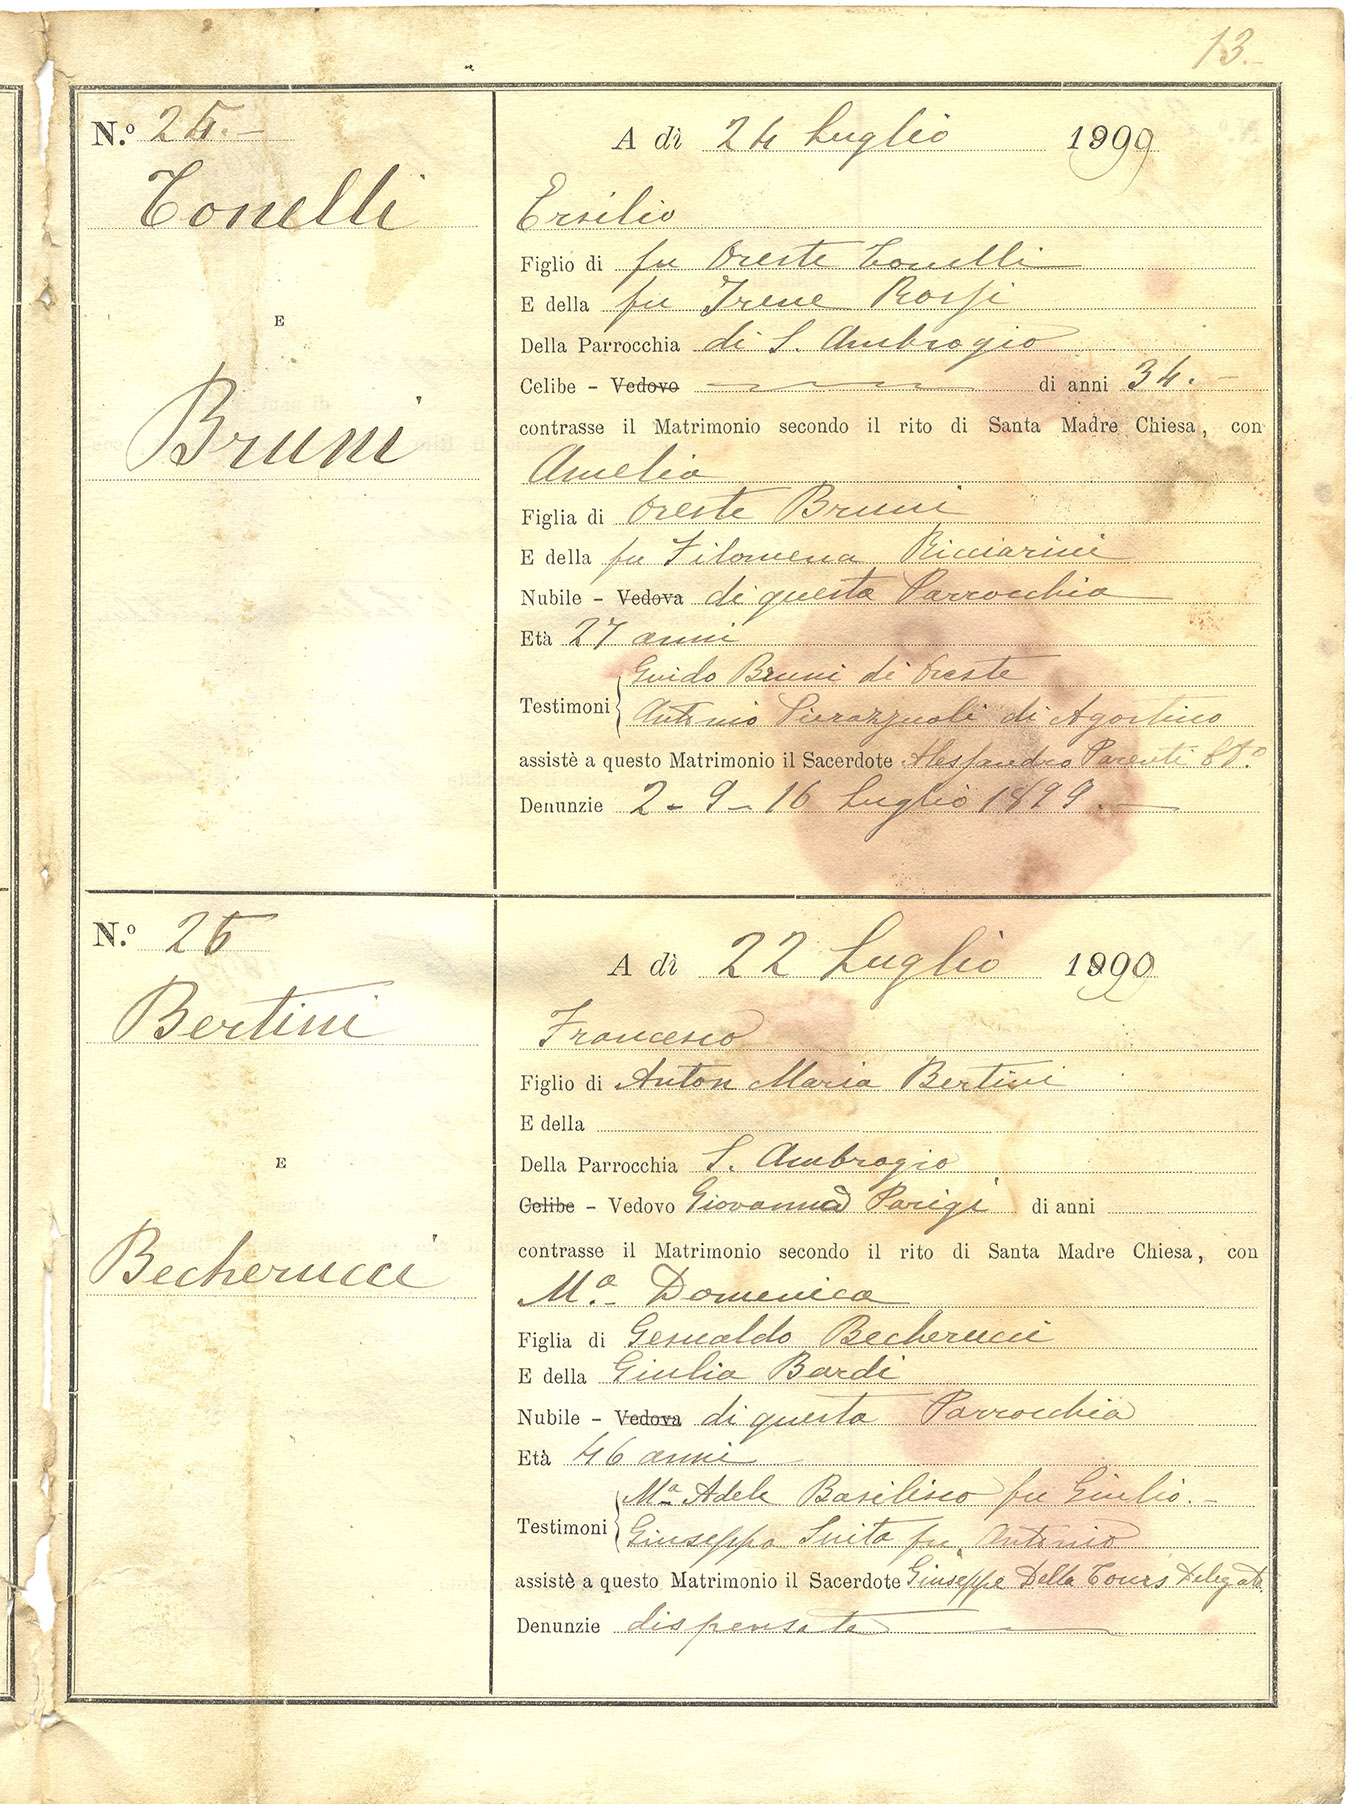 13.-
N.º 24.-
Tonelli
E
Bruni
A dì 24 Luglio 1899
Ersilio
Figlio di fu Oreste Tonelli
E della fu Irene Rossi
Della Parrocchia di S. Ambrogio
Celibe - Vedovo di anni 34.-
contrasse il Matrimonio secondo il rito di Santa Madre Chiesa, con
Amelia
Figlia di Oreste Bruni
E della fu Filomena Ricciarini
Nubile - Vedova di questa Parrocchia
Età 27 anni
Guido Bruni di Oreste
Testimoni
Antonio Pierazzuoli di Agostino
assistè a questo Matrimonio il Sacerdote Alessandro Parenti
Denunzie 2 - 9 - 16 Luglio 1899.-
N.º 25
Bertini
E
Becherucci
A dì 22 Luglio 1899
Francesco
Figlio di Anton Maria Bertini
E della
Della Parrocchia S. Ambrogio
Celibe - Vedovo Giovanna Parigi di anni
contrasse il Matrimonio secondo il rito di Santa Madre Chiesa, con
Mª.- Domenica
Figlia di Gesualdo Becherucci
E della Giulia Bardi
Nubile - Vedova di questa Parrocchia
Età 46 anni
Mª Adele Basilisco fu Giulio.-
Testimoni
Giuseppa fu Antonio
assistè a questo Matrimonio il Sacerdote Giuseppe Della Tours Delegato
Denunzie dispensate